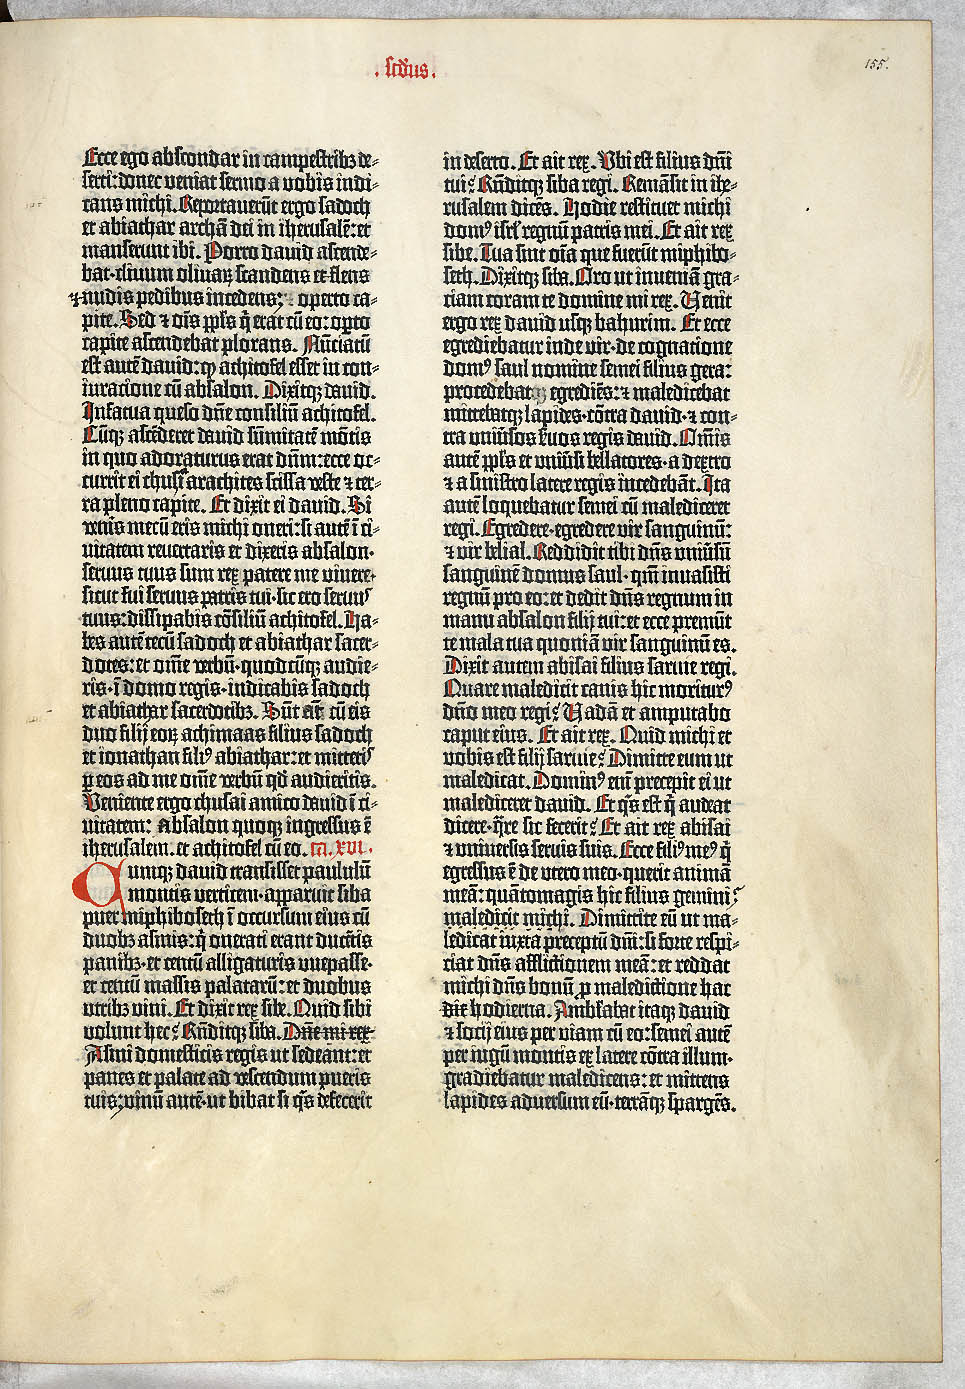 .scd̄us.
155.
Ecce ego abscondar in campestribꝫ de-
serti: donec veniat sermo a vobis indi-
cans michi. Reportauerūt ergo sadoch
et abiathar archā dei in iherusalē: et
manserunt ibi. Porro dauid ascende-
bat · cliuum oliuaꝝ scandens et flens
⁊ nudis pedibus incedens: operto ca-
pite. Sed ⁊ oīs ppl̄s q̄ erat cū eo: opto
capite ascendebat plorans. Nūciatū
est autē dauid: ꝙ achitofel esset in con-
iuratione cū absalon. Dixitqꝫ dauid.
Infatua queso dn̄e consiliū achitofel.
Cūqꝫ ascēderet dauid sūmitatē mōtis
in quo adoraturus erat dn̄m: ecce oc-
currit ei chusi arachites scissa veste ⁊ ter-
ra pleno capite. Et dixit ei dauid. Si
veneris mecū eris michi oneri: si autē ī ci-
uitatem reuertaris et dixeris absalon ·
seruus tuus sum rex patere me viuere ·
sicut fui seruus patris tui · sic ero seruus
tuus: dissipabis cōsiliū achitofel. Ha-
bes autē tecū sadoch et abiathar sacer-
dotes: et om̄e verbū · quodcūqꝫ audie-
ris · ī domo regis · indicabis sadoch
et abiathar sacerdotibꝫ. Sūt aūt cū eis
duo filij eoꝝ achimaas filius sadoch
et ionathan filiꝰ abiathar: et mittetis
ꝑ eos ad me om̄e verbū qd̄ audieritis.
Veniente ergo chusai amico dauid ī ci-
uitatem: Absalon quoqꝫ ingressus ē
iherusalem · et achitofel cū eo. ca. XVI.
Cumqꝫ dauid transisset paululū
montis verticem · apparuit siba
puer miphiboseth ī occursum eius cū
duobꝫ asinis: q̄ onerati erant ducētis
panibꝫ · et centū alligaturis vuepasse ·
et centū massis palataruū: et duobus
vtribꝫ vini. Et dixit rex sibe. Quid sibi
volunt hec? Rn̄ditqꝫ siba. Dn̄e mi rex
Asini domesticis regis ut sedeant: et
panes et palate ad vescendum pueris
tuis: vinū autē · ut bibat si q̄s defecerit
in deserto. Et ait rex. Vbi est filius dn̄i
tui? Rn̄ditqꝫ siba regi. Remāsit in ihe-
rusalem dicēs. Hodie restituet michi
domꝰ isrl̄ regnū patris mei. Et ait rex
sibe. Tua sint oīa que fuerūt miphibo-
seth. Dixitqꝫ siba. Oro ut inueniā gra-
ciam coram te domine mi rex. Venit
ergo rex dauid usqꝫ bahurim. Et ecce
egrediebatur inde vir · de cognatione
domꝰ saul nomine semei filius gera:
procedebatqꝫ egrediēs: ⁊ maledicebat
mittebatqꝫ lapides · cōtra dauid · ⁊ con-
tra vniūsos ẜuos regis dauid. Om̄is
autē ppl̄s et vniūsi bellatores · a dextro
⁊ a sinistro latere regis incedebāt. Ita
autē loquebatur semei cū malediceret
regi. Egredere · egredere vir sanguinū:
⁊ vir belial. Reddidit tibi dn̄s vniūsū
sanguinē domus saul · qm̄ inuasisti
regnū pro eo: et dedit dn̄s regnum in
manu absalon filij tui: et ecce premūt
te mala tua quoniā vir sanguinū es.
Dixit autem abisai filius saruie regi.
Quare maledicit canis hic moriturꝰ
dn̄o meo regi? Vadā et amputabo
caput eius. Et ait rex. Quid michi et
vobis est filij saruie? Dimitte eum ut
maledicat. Dominꝰ em̄ precepit ei ut
malediceret dauid. Et q̄s est q̄ audeat
dicere · q̄re sic fecerit? Et ait rex abisai
⁊ vniuersis seruis suis. Ecce filiꝰ meꝰ q̄
egressus ē de vtero meo · querit animā
meā: quātomagis hic filius gemini?
maledicit michi. Dimittite eū ut ma-
ledicat iuxta preceptū dn̄i: si forte respi-
ciat dn̄s afflictionem meā: et reddat
michi dn̄s bonū ꝓ maledictione hac
die hodierna. Ambl̄abat itaqꝫ dauid
⁊ socij eius per viam cū eo: semei autē
per iugū montis ex latere cōtra illum ·
gradiebatur maledicens: et mittens
lapides aduersum eū · terrāqꝫ spargēs.